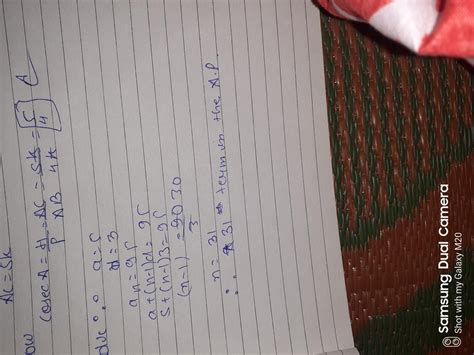 AC = 5k
now
cosec A = H/P = AC/AB = 5k/4k = 5/4 A
a = 5
d = 3
an = 95
a+(n-1)d = 95
5+(n-1)3 = 95
(n-1) = 90 30/3
n = 31
∴ 31 terms in the A.P.
Samsung Dual Camera
Shot with my Galaxy M20